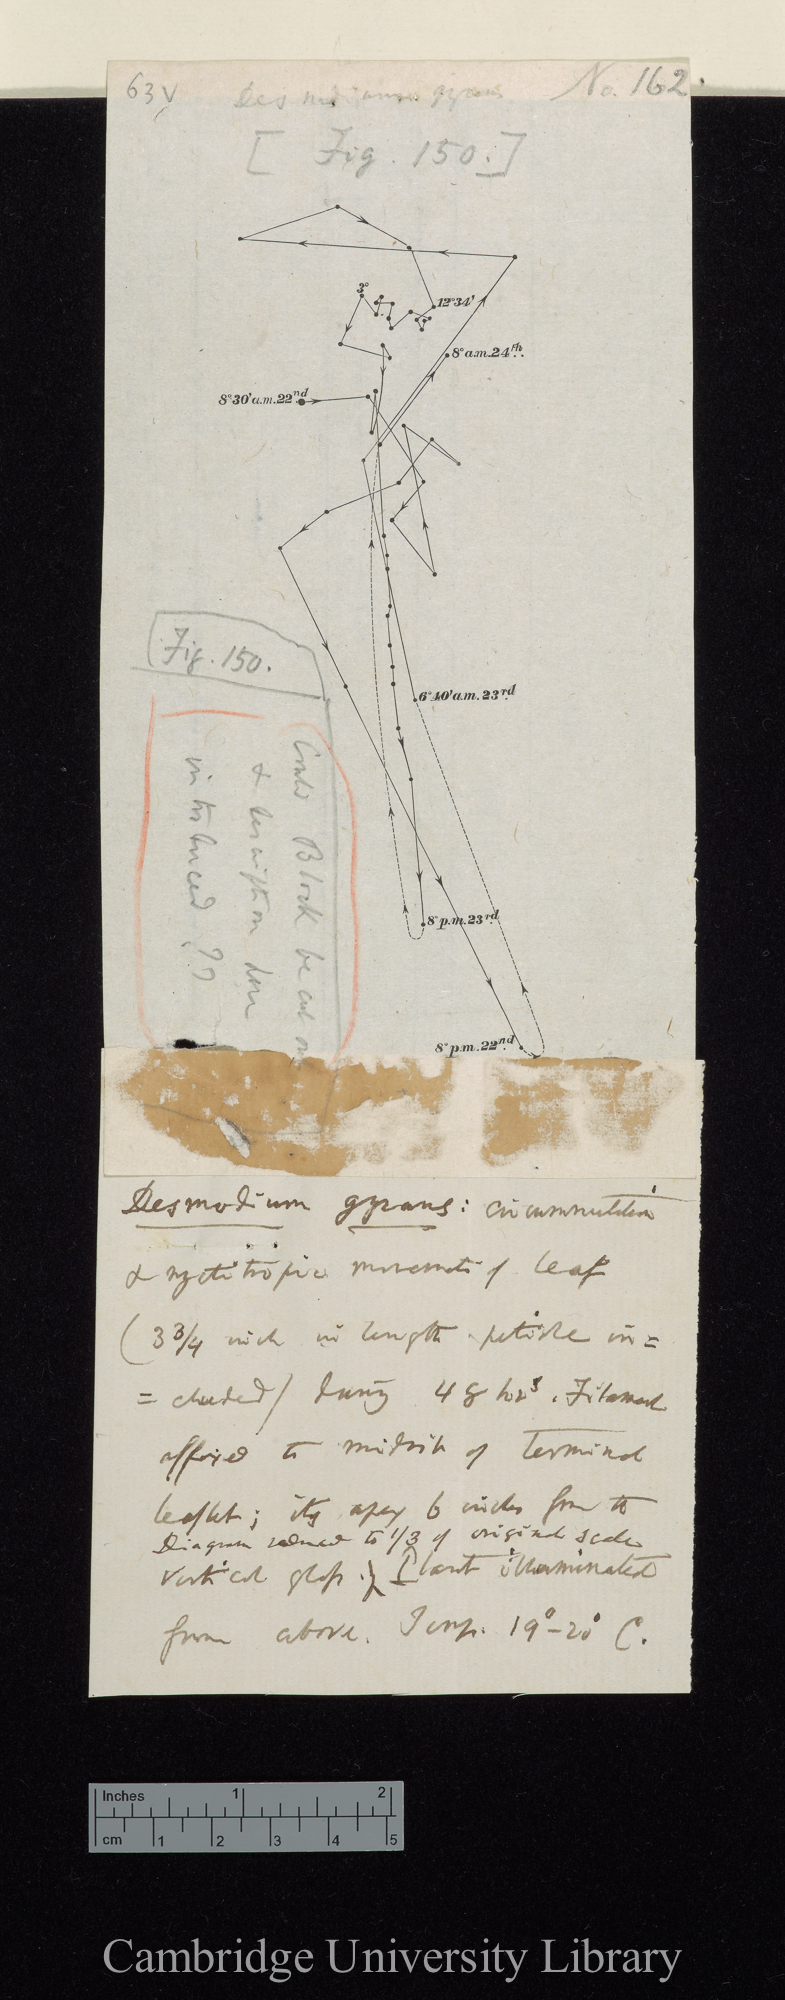 63v
Desmodium gyrans
No. 162.
[ Fig. 150.]
3°
12°34'
8° a.m. 24th.
8°30' a.m. 22nd
Fig. 150.
6°40' a.m. 23rd.
Could Block be cut
& description here
introduced ??
8° p.m. 23rd.
8° p.m. 22nd.
Desmodium gyrans: circumnutation
& nyctitropic movements of leaf
(3 3/4 inch in length petiole in=
=cluded) during 48 hours. Filament
affixed to midrib of terminal
leaflet; its apex 6 inches from the
Diagram reduced to 1/3 of original scale
vertical glass. Plant illuminated
from above. Temp. 19°-20° C.
Inches 1 2
cm 1 2 3 4 5
Cambridge University Library